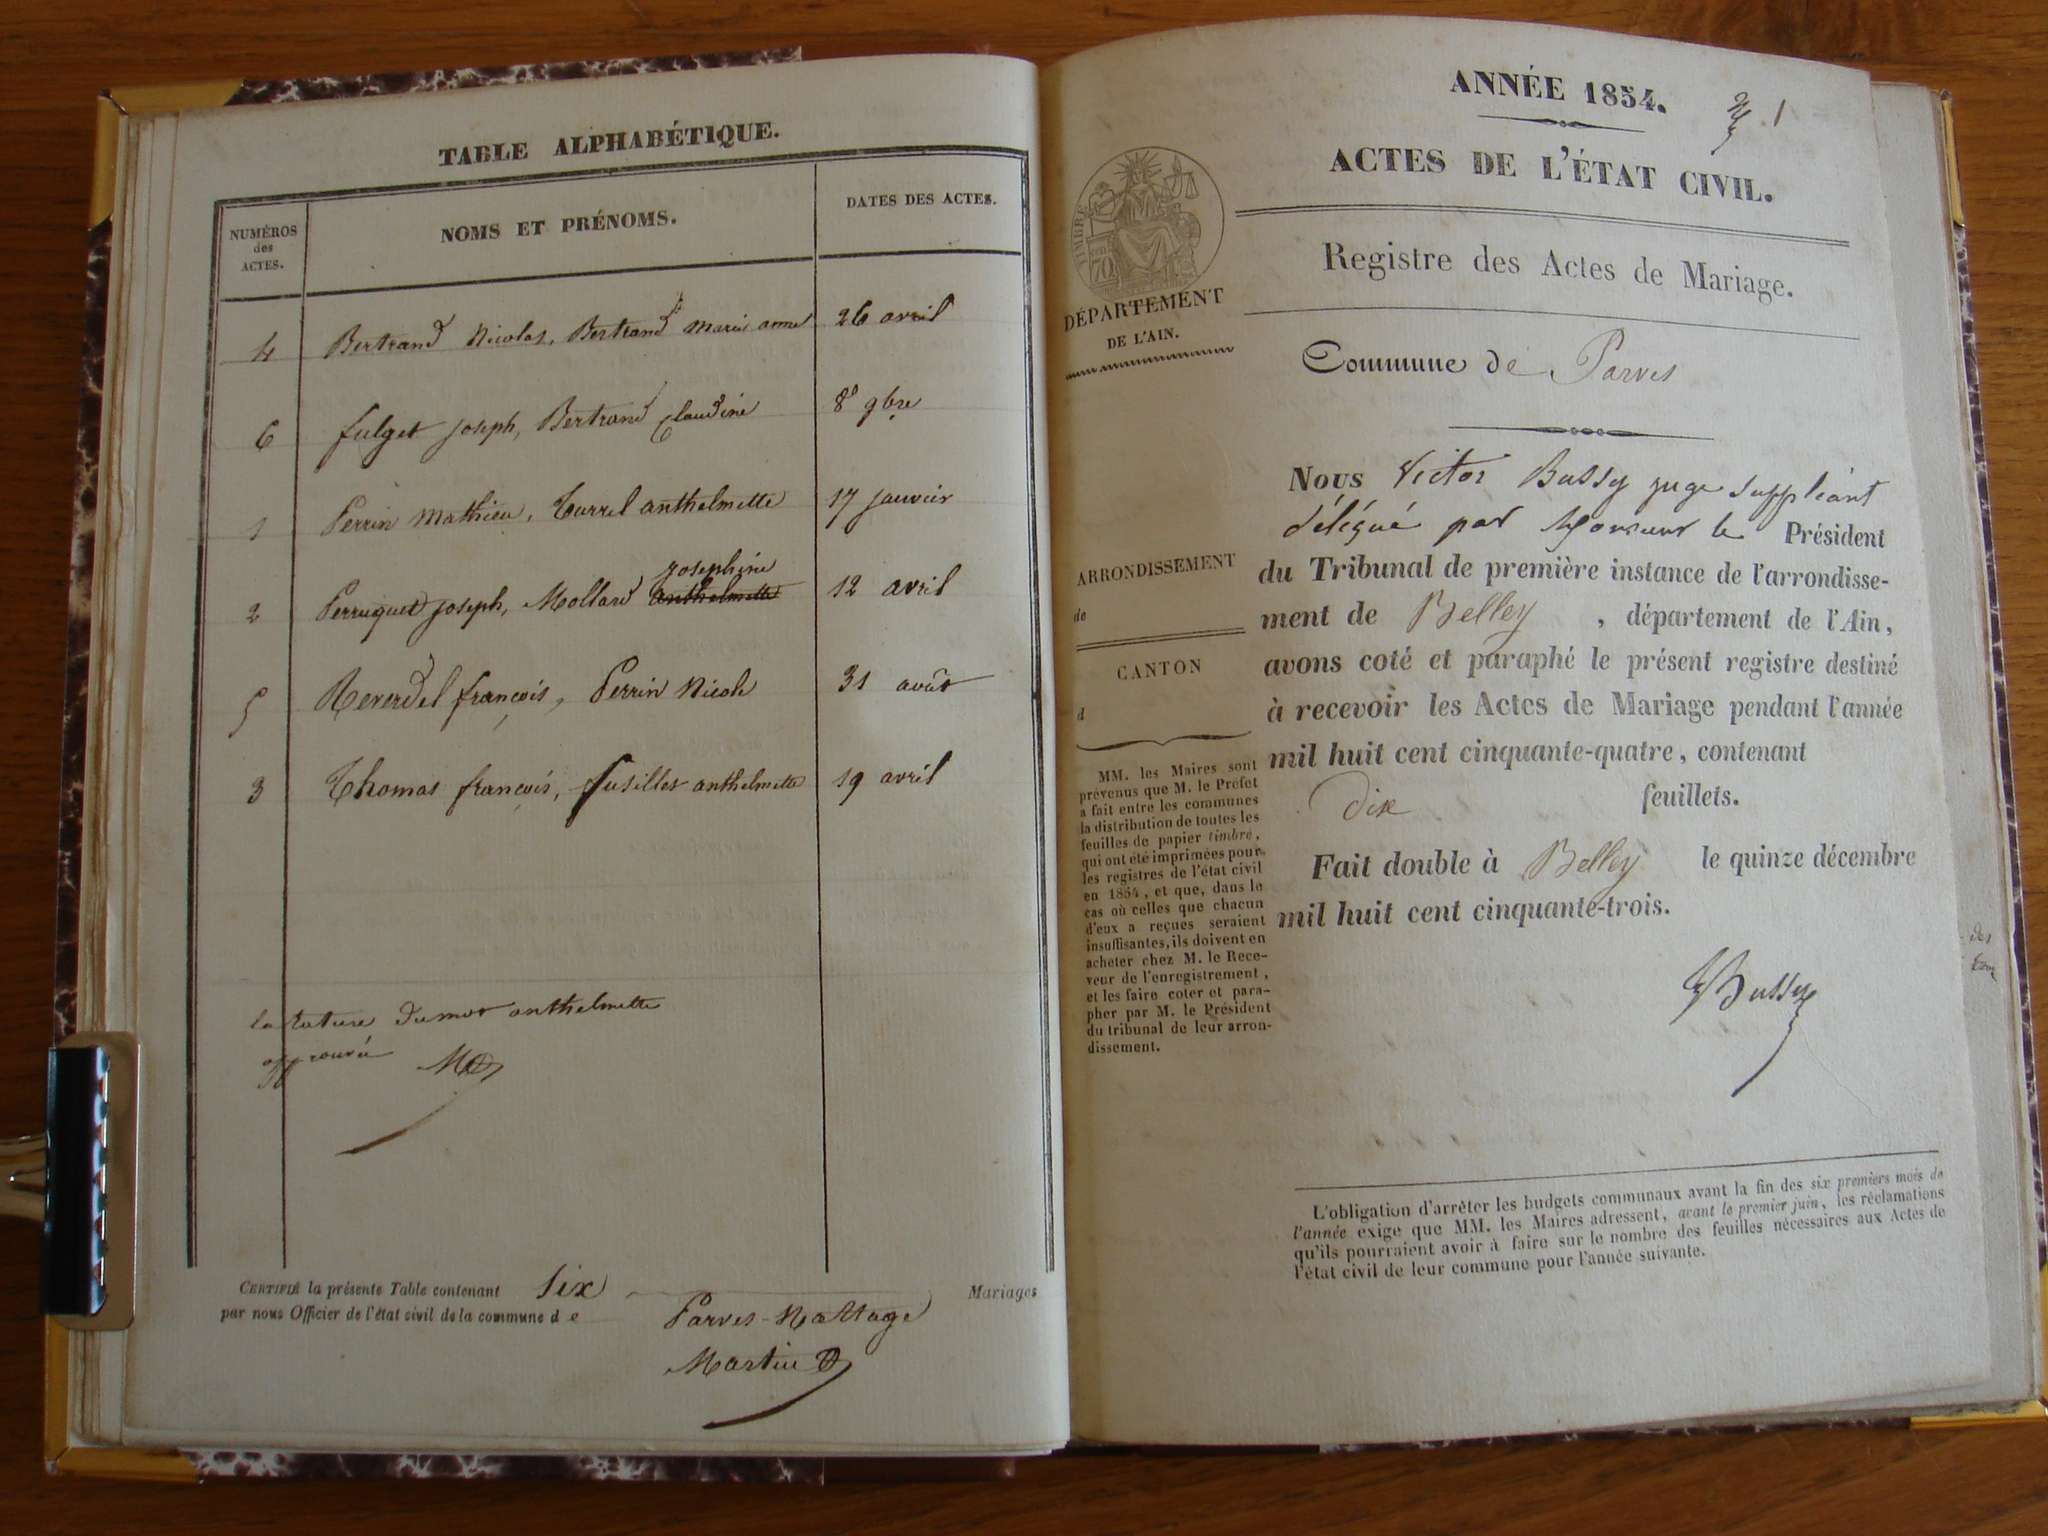 TABLE ALPHABÉTIQUE.
NUMÉROS des ACTES.
NOMS ET PRÉNOMS.
DATES DES ACTES.
4 Bertrand Nicolas, Bertrand marie anne 26 avril
6 fulget joseph, Bertrand Claudine 8 9bre
1 Perrin mathieu, Turrel anthelmette 17 janvier
josephine
2 Perruquet joseph, Mollard anthelmette 12 avril
5 Reverdel françois, Perrin Nicole 31 août
3 Thomas françois, fusillet anthelmette 19 avril
la rature du mot anthelmette
approuvée
CERTIFIÉ la présente Table contenant Six Mariages
par nous Officier de l'état civil de la commune de Parves-Nattage
Martin
ANNÉE 1854.
1
ACTES DE L'ÉTAT CIVIL.
Registre des Actes de Mariage.
TIMBRE
70
DÉPARTEMENT
DE L'AIN.
Commune de Parves
ARRONDISSEMENT
de
CANTON
d
MM. les Maires sont
prévenus que M. le Préfet
a fait entre les communes
la distribution de toutes les
feuilles de papier timbré,
qui ont été imprimées pour
les registres de l'état civil
en 1854, et que, dans le
cas où celles que chacun
d'eux a reçues seraient
insuffisantes, ils doivent en
acheter chez M. le Rece-
veur de l'enregistrement,
et les faire coter et para-
pher par M. le Président
du tribunal de leur arron-
dissement.
Nous Victor Bussy juge suppléant
délégué par Monsieur le Président
du Tribunal de première instance de l'arrondisse-
ment de Belley, département de l'Ain,
avons coté et paraphé le présent registre destiné
à recevoir les Actes de Mariage pendant l'année
mil huit cent cinquante-quatre, contenant
dix feuillets.
Fait double à Belley le quinze décembre
mil huit cent cinquante-trois.
VBussy
L'obligation d'arrêter les budgets communaux avant la fin des six premiers mois de
l'année exige que MM. les Maires adressent, avant le premier juin, les réclamations
qu'ils pourraient avoir à faire sur le nombre des feuilles nécessaires aux Actes de
l'état civil de leur commune pour l'année suivante.
des